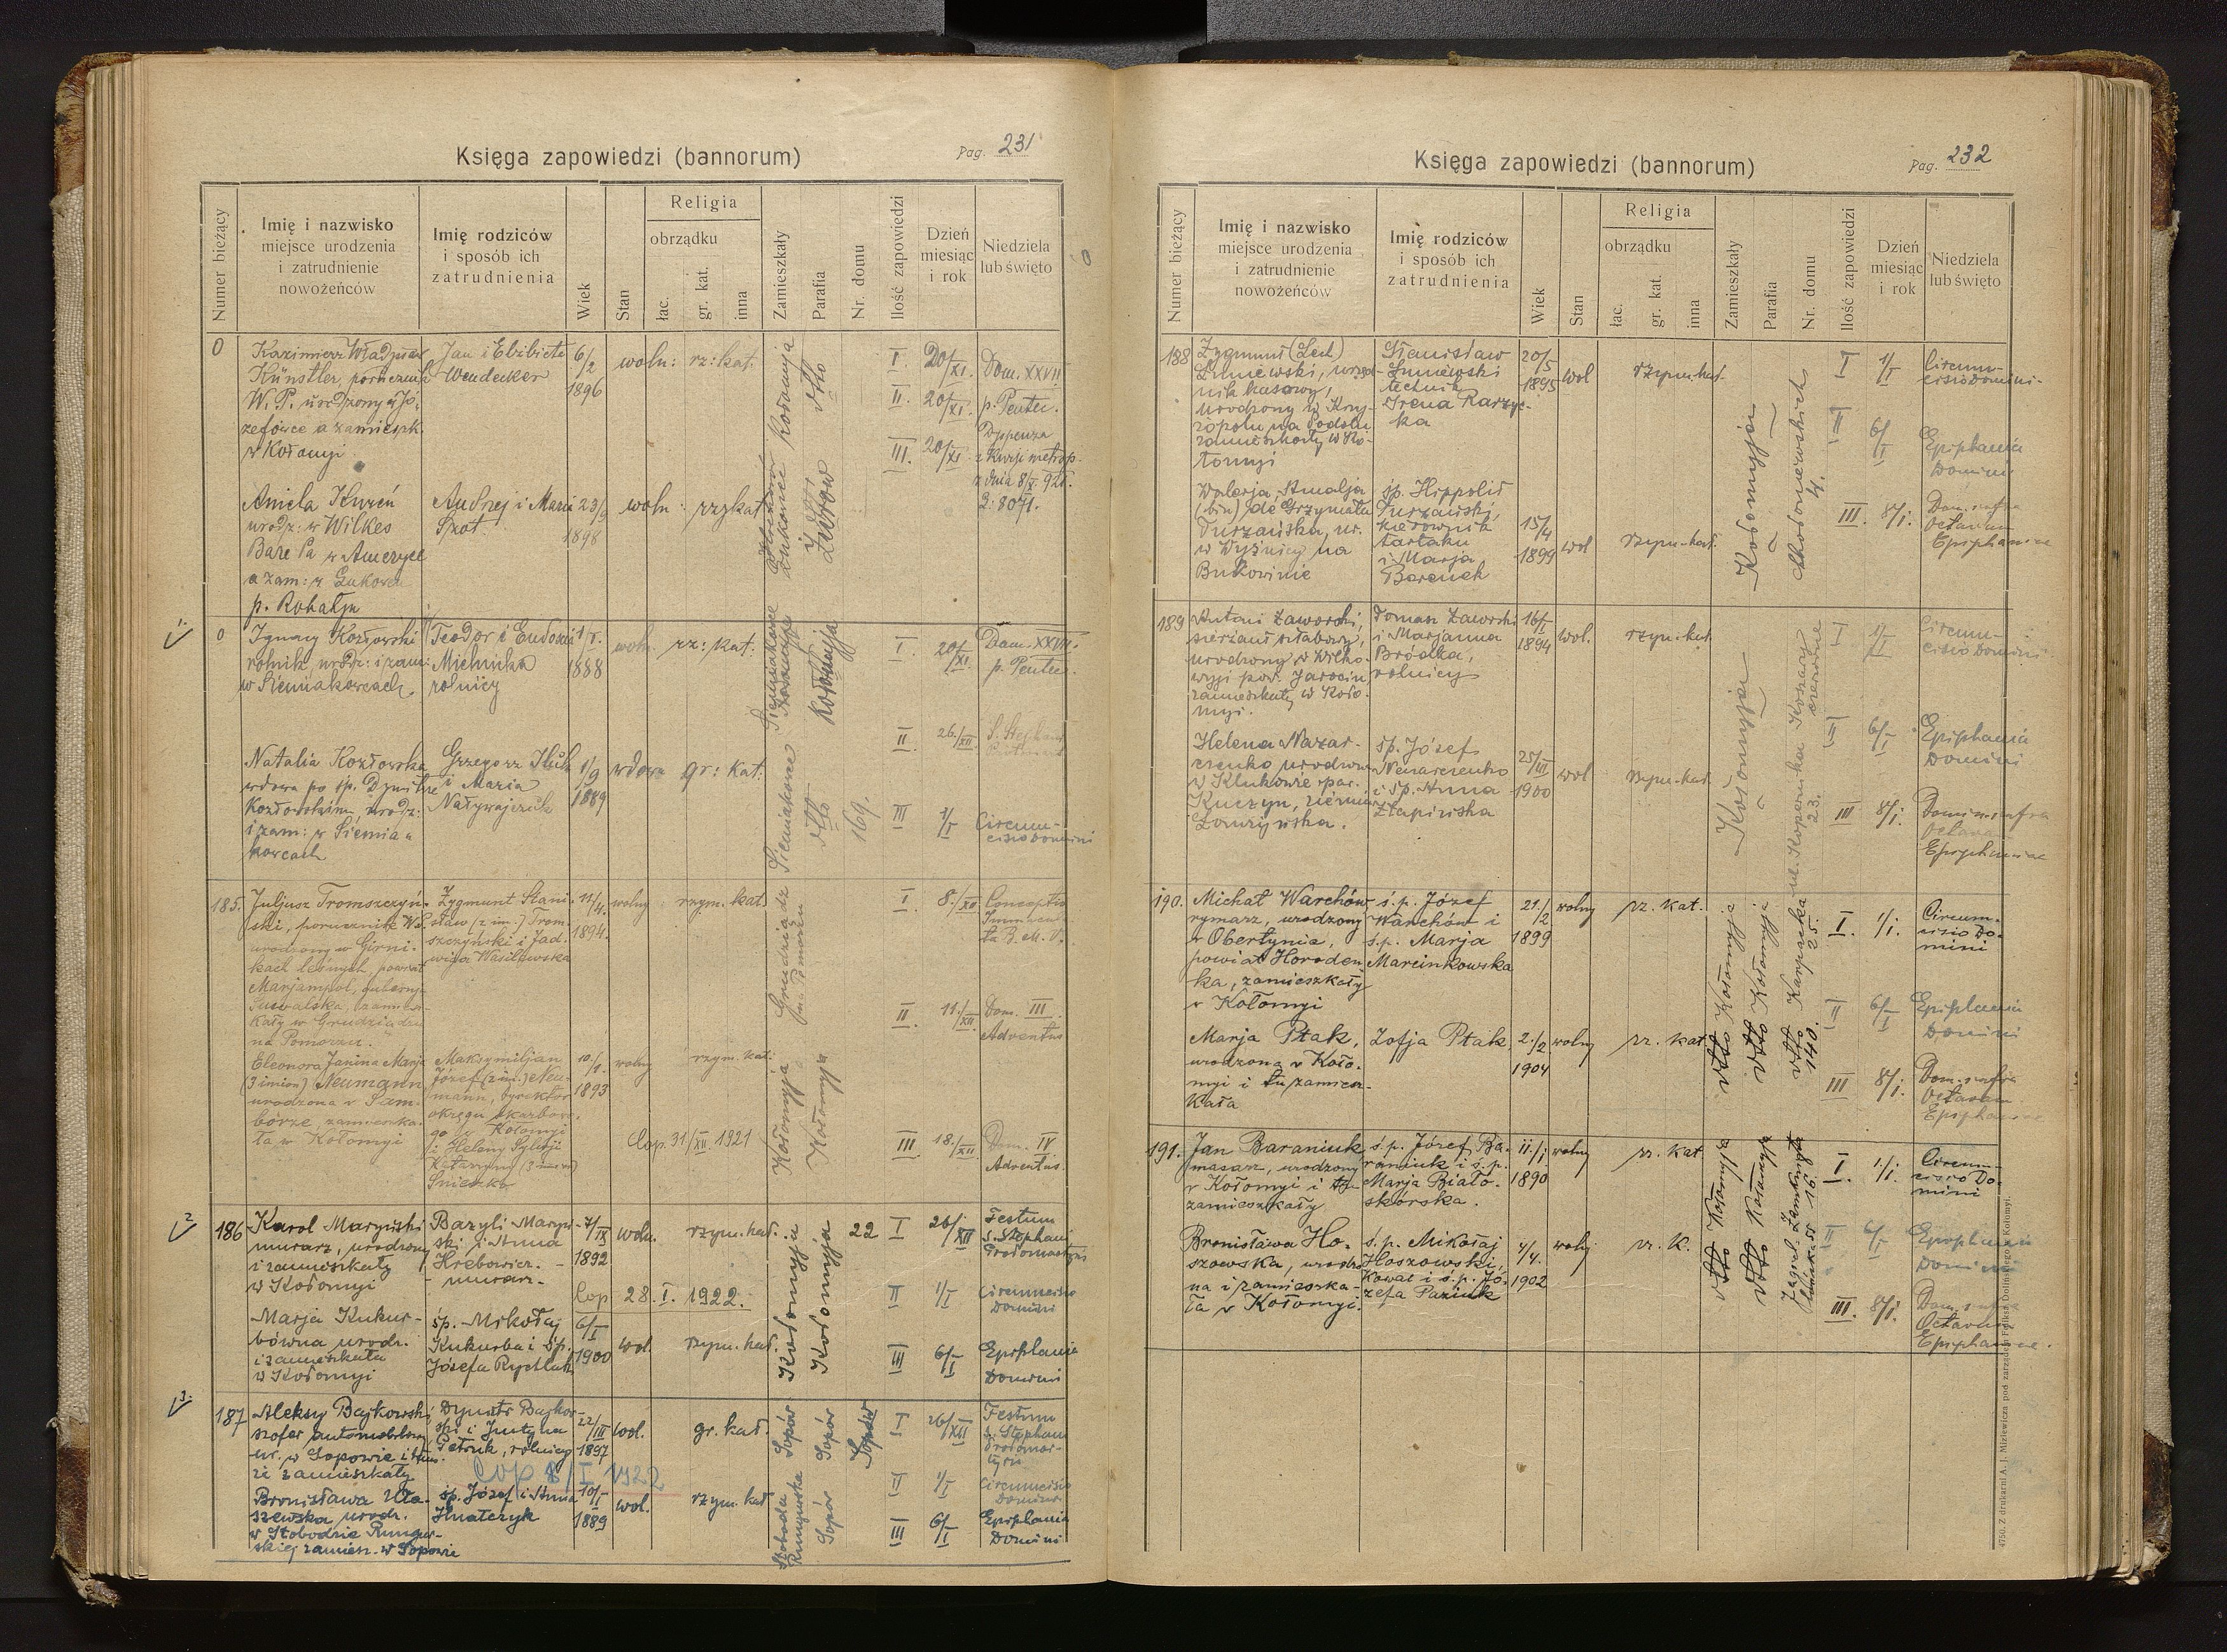 Księga zapowiedzi (bannorum)
Pag. 231
Numer bieżący
Imię i nazwisko
miejsce urodzenia
i zatrudnienie
nowożeńców
Imię rodziców
i sposób ich
zatrudnienia
Wiek
Stan
Religia
obrządku
łac.
gr. kat.
inna
Zamieszkały
Parafia
Nr. domu
Ilość zapowiedzi
Dzień
miesiąc
i rok
Niedziela
lub święto
0
Kazimierz Władysław
Künstler, porucznik
W. P. urodzony w Jó-
zefówce a zamieszk.
w Kołomyi
Jan i Elżbieta
Wendecker
6/2
1896
woln: rz: kat.
Kołomyja
dtto
I. 20/XI. Dom. XXVII
II. 20/XI. p. Pentec.
III. 20/XI. Dyspenza
z Kurji metrop.
z dnia 8/X. 921.
Aniela Kureń
urodz: w Wilkes
Bare Pa w Ameryce
a zam: w Łukowcu
p. Rohatyn
Andrzej i Maria
Szot
23/9
1898
woln: rzykat.
Żurów
1.
0
Ignacy Kozłowski
rolnik urodz: i zam:
w Sieniakowcach
Teodor i Eudoxia
Michniska
rolnicy
1/I.
1888
woln. rz: kat.
Kołomyja
I. 20/XI. Dom. XXVII.
p. Pentec.
II. 26./XII. S. Stephani
Natalia Kozłowska
wdowa po śp. Dymitrze
Kozłowskim, urodz:
i zam: w Siemia-
kowcach
Grzegorz Iluk
i Maria
Naływajczuk
1/9
1889
wdowa gr: kat:
Siemiakowce
dtto
169.
III 1/I Circum-
cisio Domini
185.
Juljusz Tromszczyń-
ski, porucznik W.P.
urodzony w Girni-
kach leśnych, powiat
Marjampol, gubernja
Suwalska, zamiesz-
kały w Grudziądzu
na Pomorzu.
Zygmunt Stani-
sław (2 im.) Trom-
szczyński i Jad-
wiga Wasilewska
11/4.
1894.
wolny rzym. kat.
Grudziądz
na Pomorzu
I. 8./XII Conceptio
Immacula-
ta B. M. V.
II. 11./XII Dom. III
Adventus
Eleonora Janina Marja
(3 imion) Neumann,
urodzona w Sam-
borze, zamieszka-
ła w Kołomyi
Maksymiljan
Józef (2 im.) Neu-
mann, dyrektor
okręgu skarbowe-
go w Kołomyi
i Heleny Sylwji
Katarzyny (3 imion)
Śnieżko
10./1.
1893
wolny rzym. kat:
Cop. 31/XII 1921
Kołomyja
Kołomyja
III. 18./XII Dom. IV
Adventus.
2
186
Karol Maryński
murarz, urodzony
i zamieszkały
w Kołomyi
Bazyli Maryń-
ski i Anna
Hrebowicz. -
- murarz -
7/IX
1892
woln. rzym. kat.
Cop 28. I. 1922.
Kołomyja
Kołomyja
22
I 26/XII Festum
s. Stephani
Protomartyris
II 1/I Circumcisio
Domini
III 6/I Epiphania
Domini
Marja Kukur-
bówna urodz.
i zamieszkała
w Kołomyi
śp. Mikołaj
Kukurba i śp.
Józefa Rychluk
6/I
1900
wol. rzym. kat.
3.
187
Aleksy Bajkowski
szofer automobilowy
ur. w Sopowie i tam-
że zamieszkały
Dymitr Bajkow-
ski i Justyna
Petruk, rolnicy
22/III
1897
wol. gr. kat.
Cop 8/I 1922
Sopów
Sopów
Sopów
I 26/XII Festum
s. Stephani
Protomar-
tyris
II 1/I Circumcisio
Domini
III 6/I Epiphania
Domini
Bronisława Ula-
szewska urodz.
w Słobodzie Rungur-
skiej zamiesz. w Sopowie
śp. Józef i Anna
Hnatczyk
10/I
1889
wol. rzym. kat
Słoboda
Rungurska
Sopów
Księga zapowiedzi (bannorum)
Pag. 232
Numer bieżący
Imię i nazwisko
miejsce urodzenia
i zatrudnienie
nowożeńców
Imię rodziców
i sposób ich
zatrudnienia
Wiek
Stan
Religia
obrządku
łac.
gr. kat.
inna
Zamieszkały
Parafia
Nr. domu
Ilość zapowiedzi
Dzień
miesiąc
i rok
Niedziela
lub święto
188
Zygmunt (Lech)
Łuniewski, urzęd-
nik kasowy,
urodzony w Krzy-
żopolu na Podolu
zamieszkały w Ko-
łomyi
Stanisław
Łuniewski
technik
Irena Karzyc-
ka
20/5
1895
wol rzym. kat.
Kołomyja
Chodoniewskich
4.
I 1/I Circum-
cisio Domini.
II 6/I Epiphania
Domini
III. 8/I. Dom. infra
Octavam
Epiphaniae
Walerja Amalja
(bin) de Grzymała
Turzańska, ur.
w Wyżnicy na
Bukowinie
śp. Hippolit
Turzański,
kierownik
tartaku
i Marja
Barenek
15/4
1899
wol rzym-kat.
189
Antoni Zaworski,
sierżant sztabowy,
urodzony w Wilko-
wyji pow. Jarocin
zamieszkały w Koło-
myi.
Tomasz Zaworski
i Marjanna
Bródka,
rolnicy
16/I
1894
wol. rzym-kat.
Kołomyja
ul. Kopernika
23.
Koszary
I 1/I Circum-
cisio Domini
II 6/I Epiphania
Domini
III 8/I. Domin. infra
Octavam
Epiphaniae
Helena Nazar-
czenko urodzona
w Klukowie par.
Kuczyn, ziemia
Łomżyńska.
śp. Józef
Nazarczenko
i śp. Anna
Złapińska
25/III
1900
wol rzym-kat.
190.
Michał Warchów
rymarz, urodzony
w Obertynie,
powiat Horoden-
ka, zamieszkały
w Kołomyi
ś.p. Józef
Warchów i
ś.p. Marja
Marcinkowska
21./2
1899
wolny rz. kat.
Kołomyja
Kołomyja
Karpacka
25.
I. 1/I. Circum-
cisio Do-
mini
II 6/I Epiphania
Domini
III 8/I. Dom. infra
Octavam
Epiphaniae
Marja Ptak,
urodzona w Koło-
myi i tu zamiesz-
kała
Zofja Ptak
2./2.
1904
wolny rz. kat.
dtto
dtto
dtto
140.
191.
Jan Baraniuk
masarz, urodzony
w Kołomyi i tu
zamieszkały
ś.p. Józef Ba-
raniuk i ś.p.
Marja Biało-
skórska.
11./I.
1890
wolny rz. kat
Kołomyja
Kołomyja
16.
I. 1/I. Circum-
cisio Do-
mini
II 6/I Epiphania
Domini
III. 8/I. Dom. infra
Octavam
Epiphaniae.
Bronisława Ho-
szowska, urodzo-
na i zamieszka-
ła w Kołomyi.
ś.p. Mikołaj
Hoszowski,
kowal i ś.p. Jó-
zefa Paziuk
4/4.
1902
wolny rz. k.
dtto
dtto
4750. Z drukarni A. J. Miziewicza pod zarządem Feliksa Dolińskiego w Kołomyi.